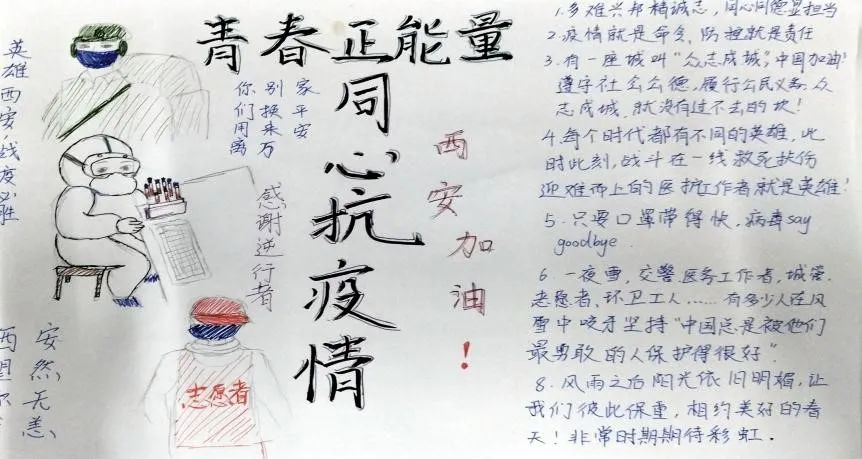 青春正能量
同心抗疫情
英雄西安,战疫必胜
你们用离
别换来万
家平安
感谢逆行者
西安加油！
志愿者
安然无恙
1.多难兴邦精诚志，同心同德显担当
2.疫情就是命令、防控就是责任
3.有一座城叫“众志成城”，中国加油！
遵守社会公德，履行公民义务，众
志成城，就没有过不去的坎！
4.每个时代都有不同的英雄，此
时此刻，战斗在一线救死扶伤
迎难而上的医护工作者就是英雄！
5.只要口罩带得快，病毒say
goodbye.
6.一夜雪，交警、医务工作者，城管、
志愿者、环卫工人……有多少人在风
雪中咬牙坚持“中国总是被他们
最勇敢的人保护得很好”.
8.风雨之后阳光依旧明媚，让
我们彼此保重，相约美好的春
天！非常时期期待彩虹.